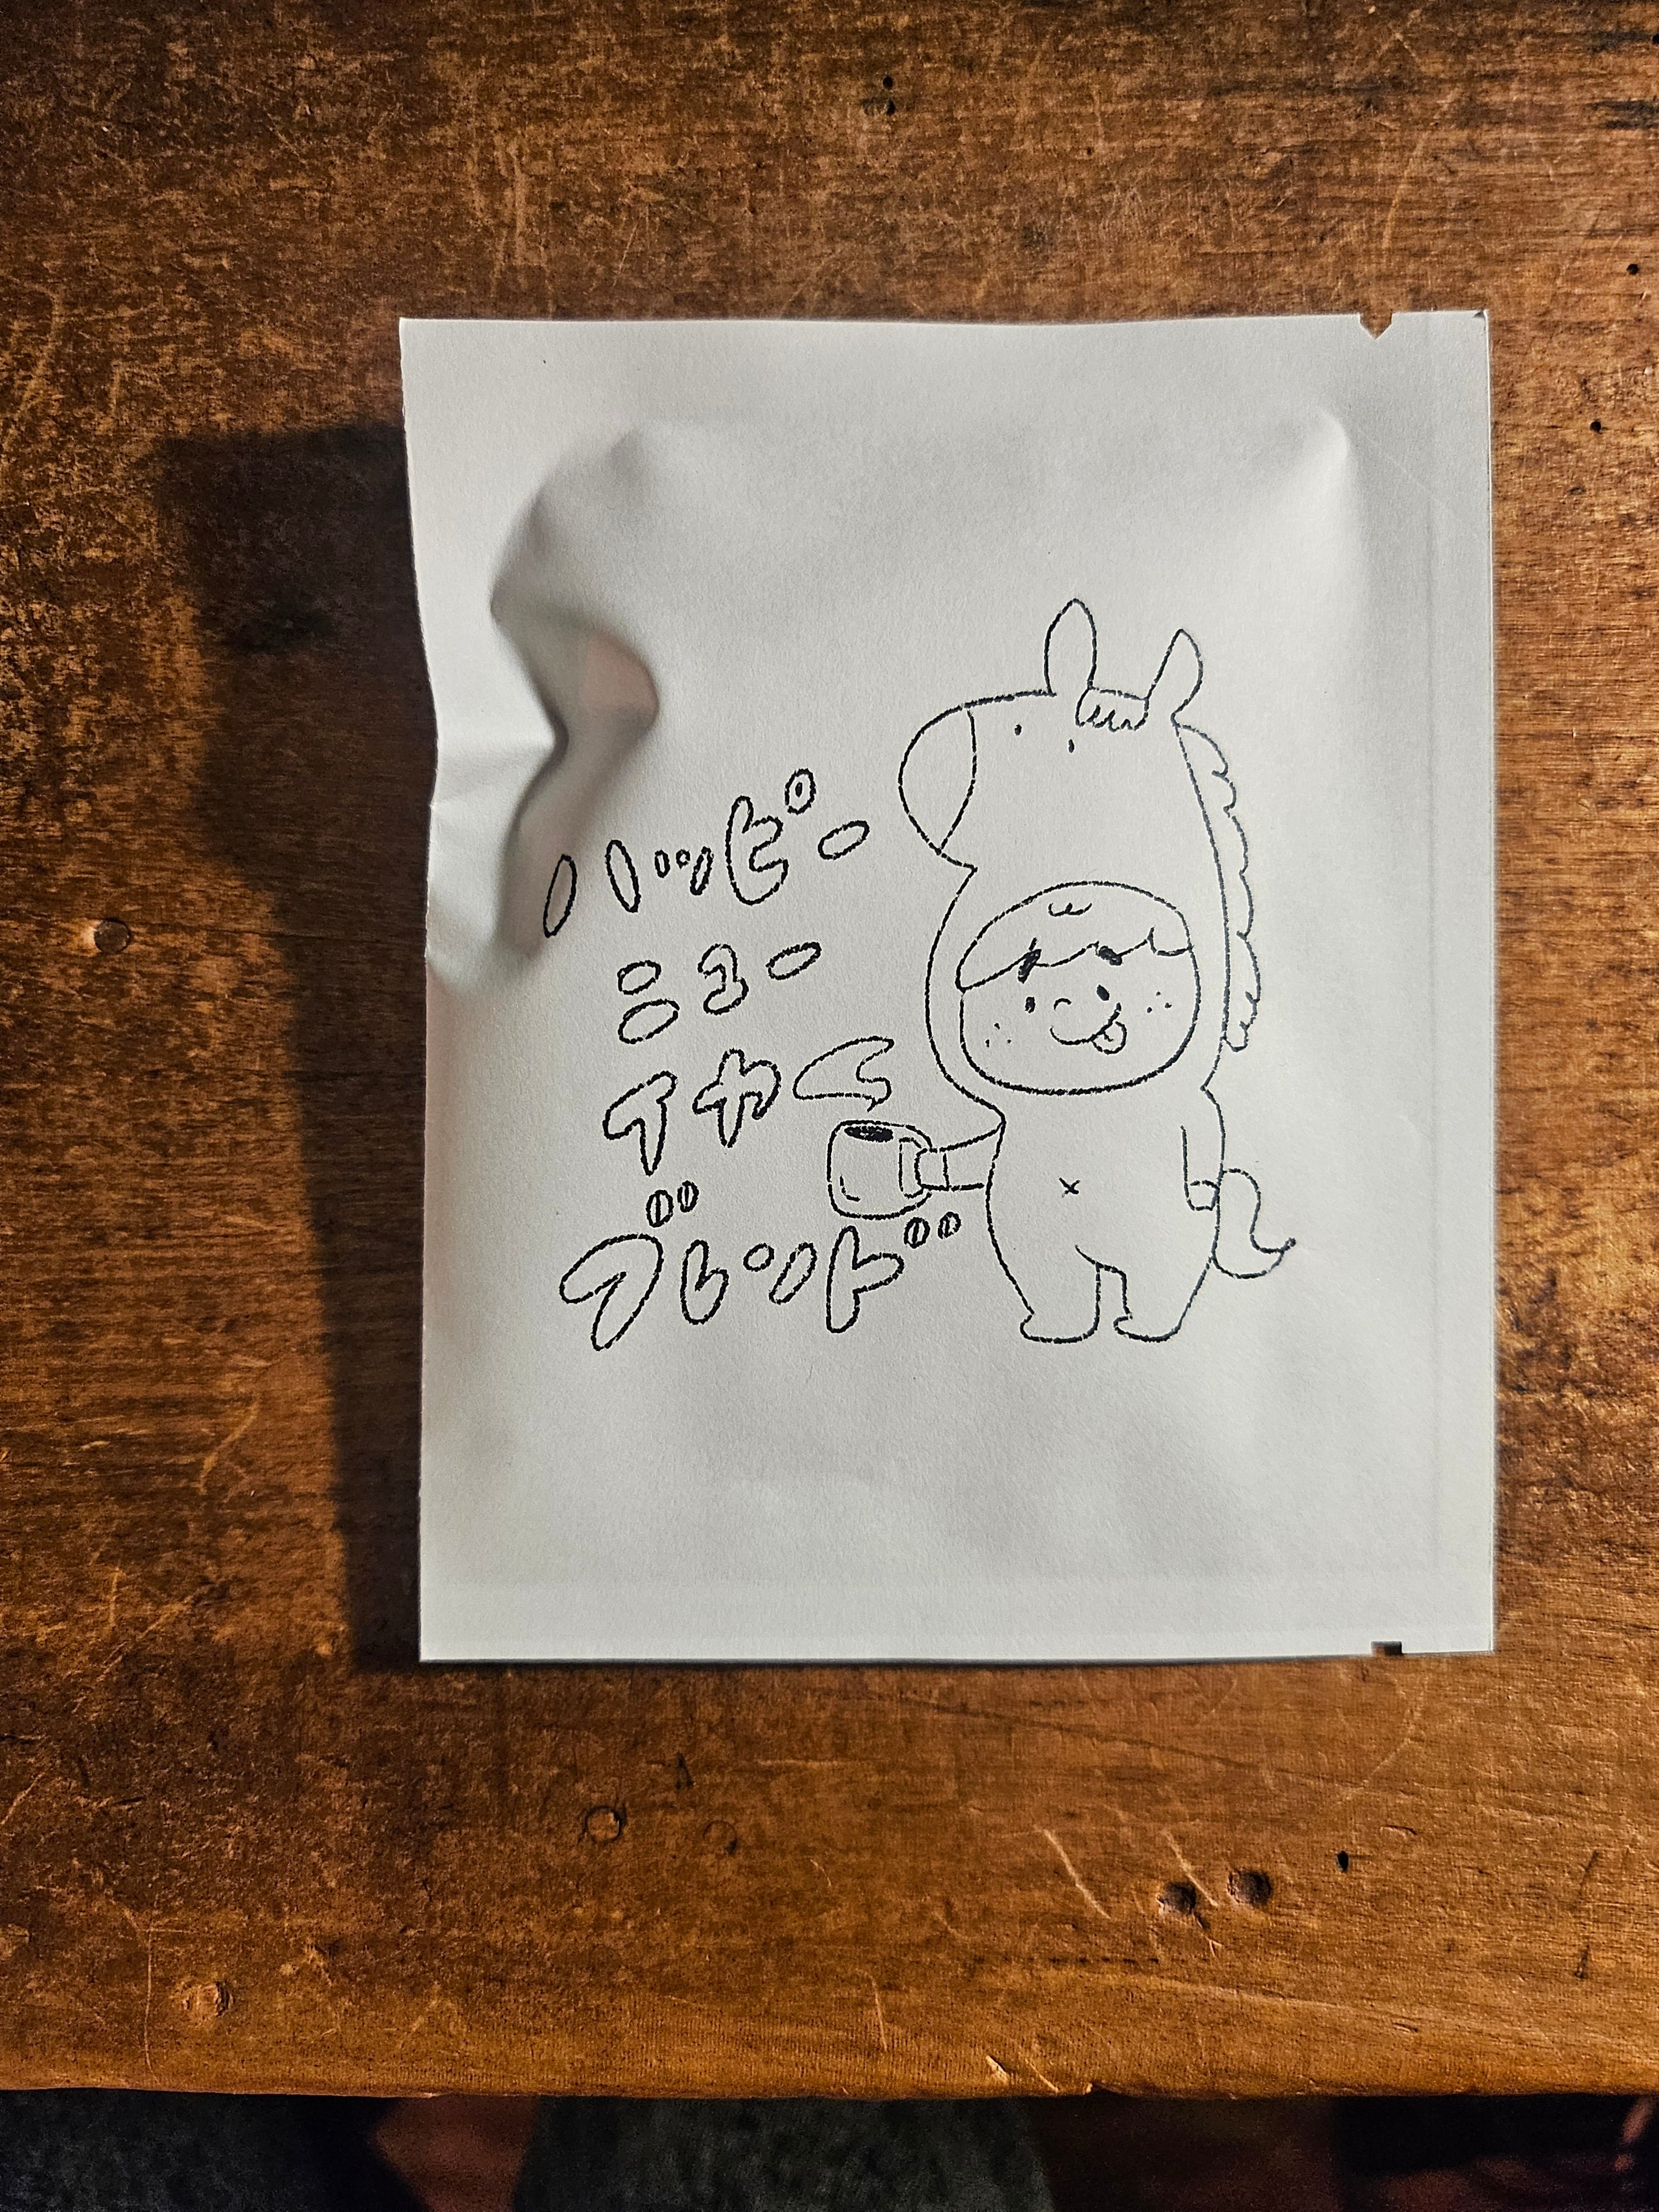 ハッピー
ニュー
イヤー
ブレンド